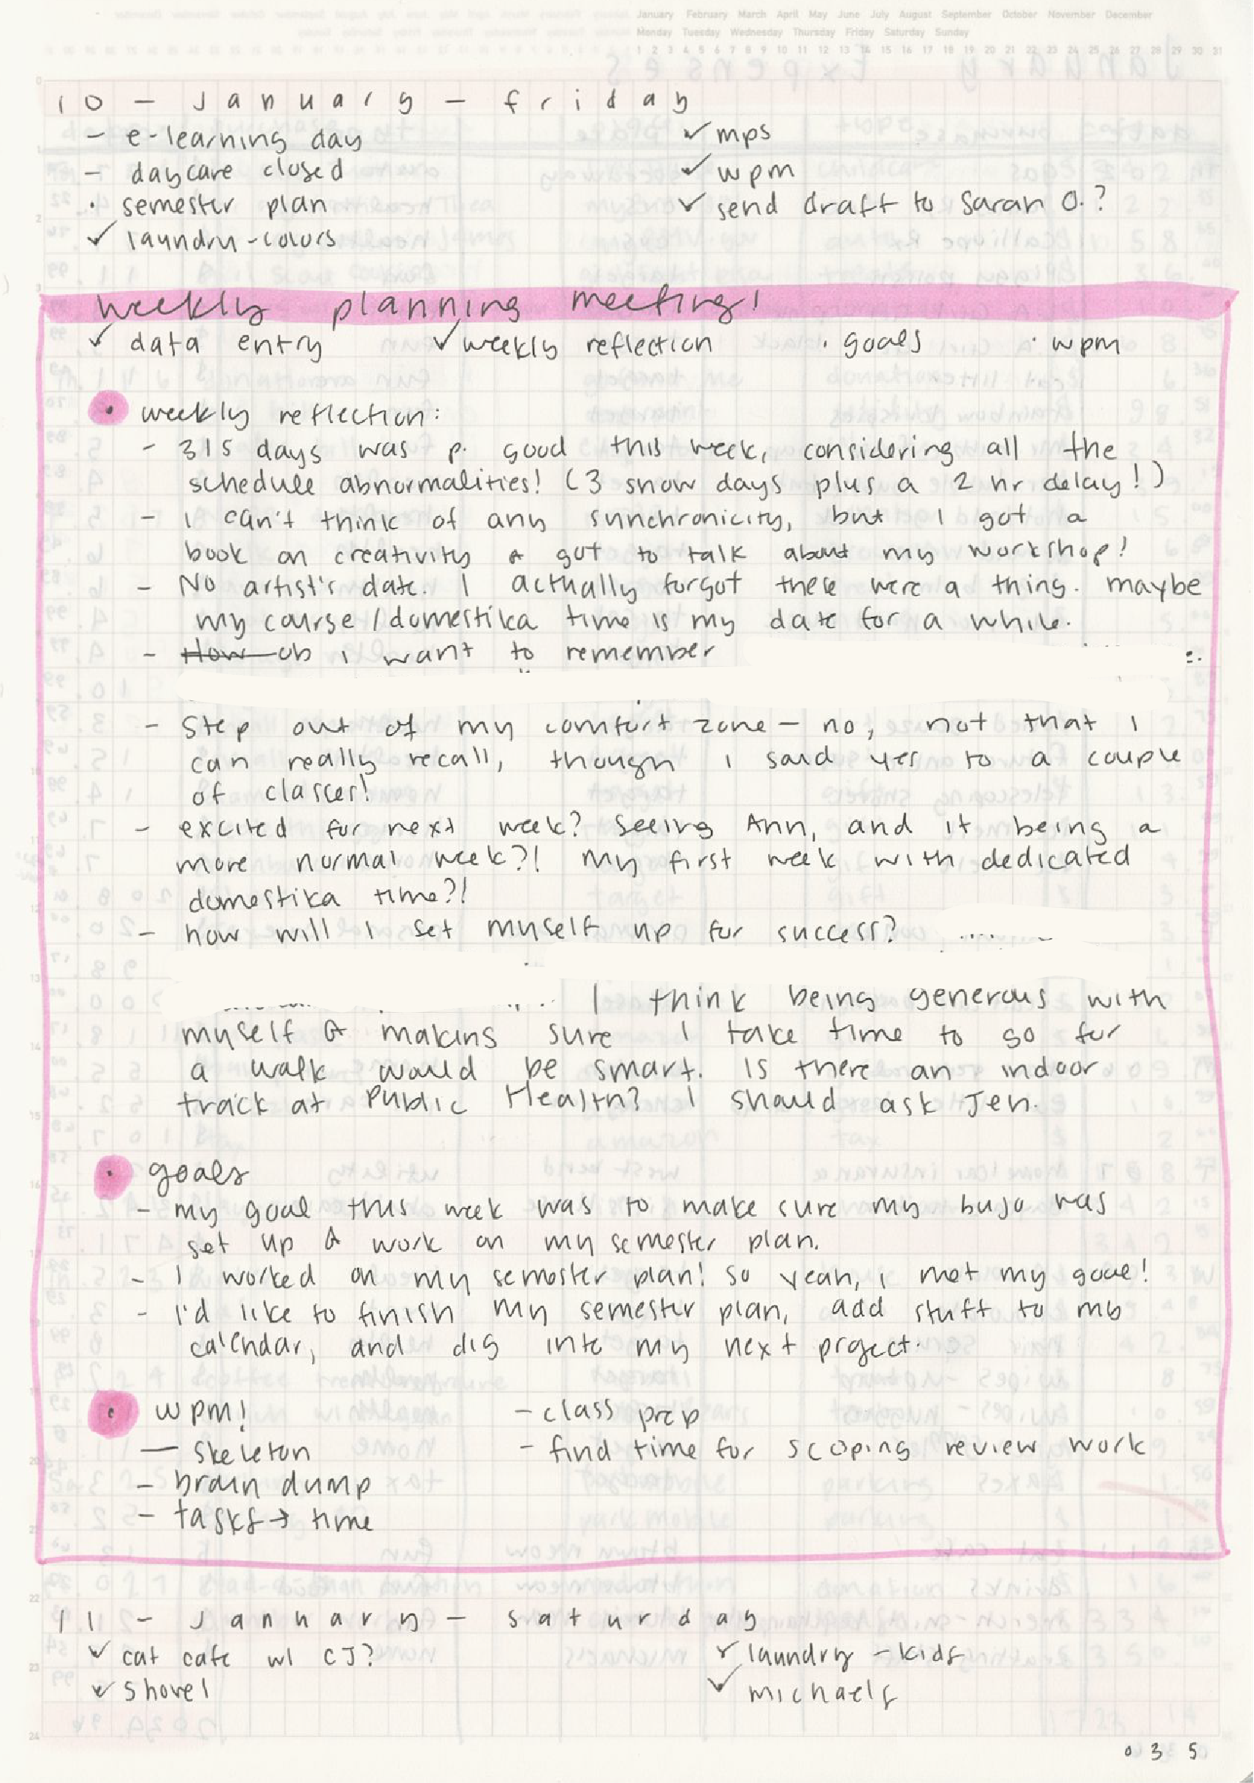 January February March April May June July August September October November December
Monday Tuesday Wednesday Thursday Friday Saturday Sunday
1 2 3 4 5 6 7 8 9 10 11 12 13 14 15 16 17 18 19 20 21 22 23 24 25 26 27 28 29 30 31
10 - January - friday
- e-learning day
- daycare closed
· semester plan
✓ laundry - colors
✓ mps
✓ wpm
✓ send draft to Sarah O.?
weekly planning meeting!
✓ data entry ✓ weekly reflection · goals · wpm
• weekly reflection:
- 3/5 days was p. good this week, considering all the
schedule abnormalities! (3 snow days plus a 2 hr delay!)
- I can't think of any synchronicity, but I got a
book on creativity & got to talk about my workshop!
- No artist's date. I actually forgot these were a thing. maybe
my course/domestika time is my date for a while.
- How ob i want to remember
- Step out of my comfort zone - no, not that I
can really recall, though I said yes to a couple
of classes!
- excited for next week? Seeing Ann, and it being a
more normal week?! My first week with dedicated
domestika time?!
- how will I set myself up for success?
I think being generous with
myself & making sure I take time to go for
a walk would be smart. Is there an indoor
track at Public Health? I should ask Jen.
• goals
- my goal this week was to make sure my bujo was
set up & work on my semester plan.
- I worked on my semester plan! So yeah, i met my goal!
- I'd like to finish my semester plan, add stuff to mb
calendar, and dig into my next project.
• wpm!
- skeleton
- brain dump
- tasks → time
- class prep
- find time for scoping review work
11 - January - saturday
✓ cat cafe w/ CJ?
✓ shovel
✓ laundry - kids
✓ michaels
035